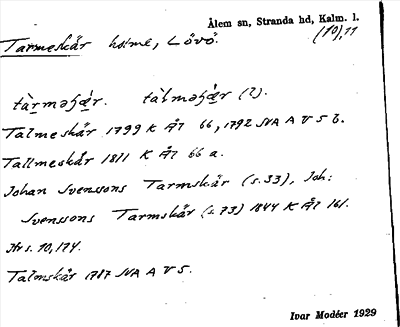 Ålem sn, Stranda hd, Kalm. l.
Tarmeskär holme, Lövö. (10),11
tàrməʃæ̀r. tàlməʃæ̀r (?).
Talmeskär 1799 K Ål 66, 1792 NA A V 5 b.
Tallmeskär 1811 K Ål 66 a.
Johan Svenssons Tarmskär (s.33), Joh:
Svenssons Tarmskär (s.73) 1844 K Ål 161.
Hrs. 10, 174.
Talmskär 1787 NA A V 5.
Ivar Modéer 1929